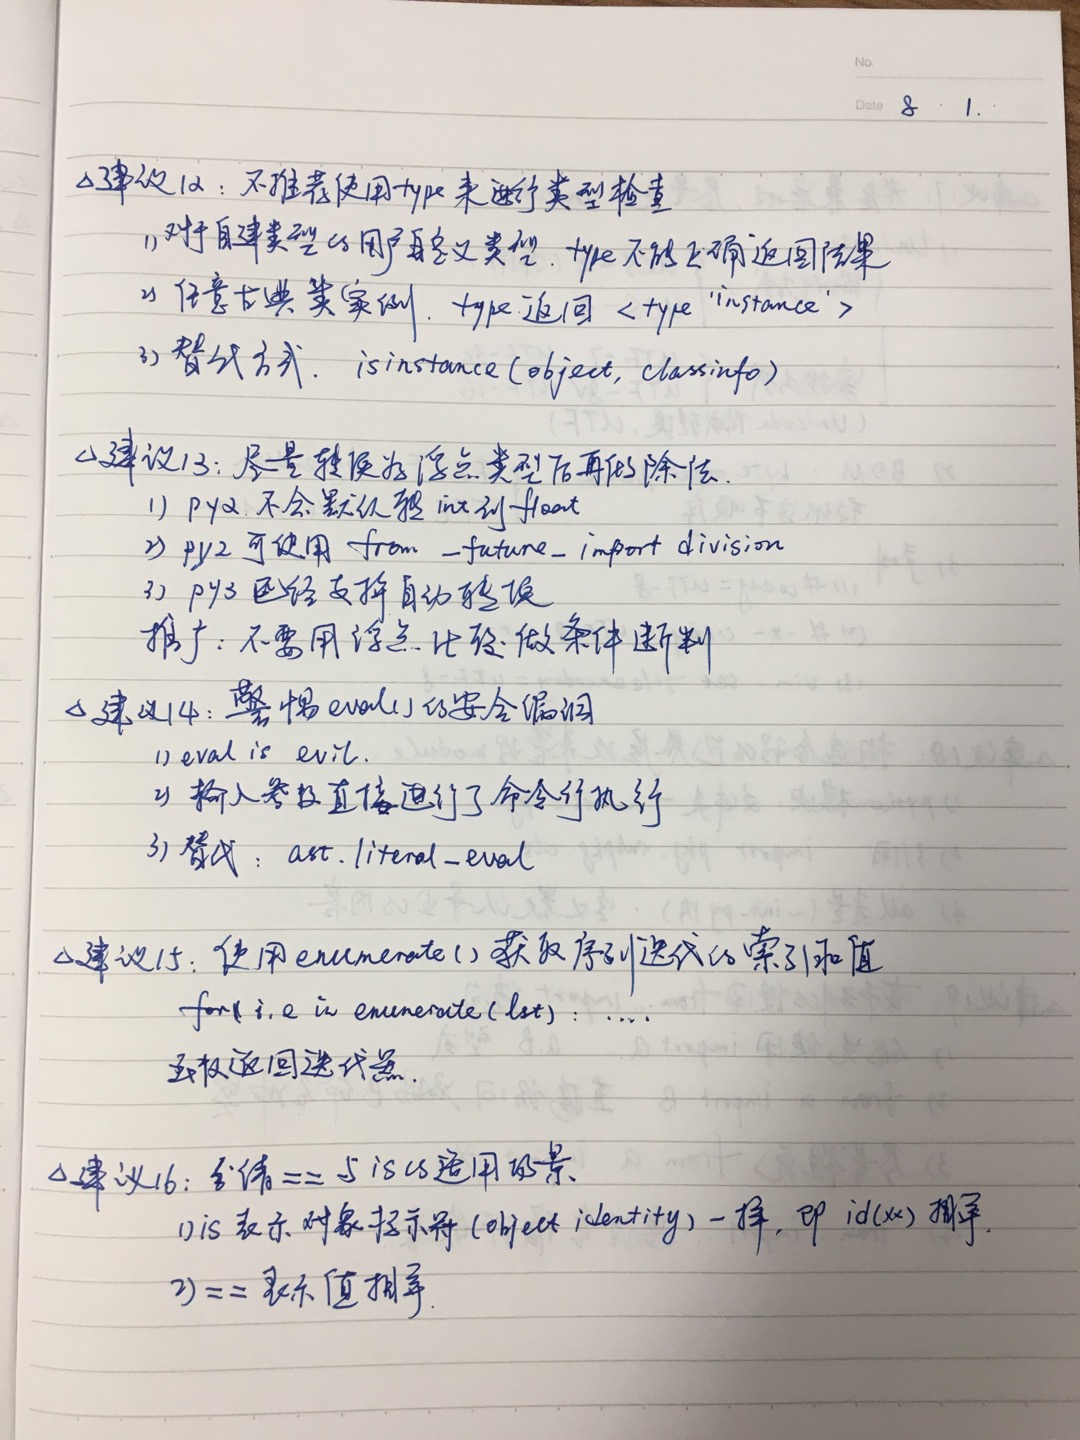 No.
Date 8 · 1 ·
△建议12：不推荐使用type来进行类型检查
1) 对于自建类型的用户自定义类型. type不能正确返回结果
2) 任意古典类实例. type返回 <type 'instance'>
3) 替代方式. isinstance(object, classinfo)
△建议13：尽量转换为浮点类型后再做除法.
1) py2 不会默认转int到float
2) py2 可使用 from _future_ import division
3) py3 已经支持自动转换
推广：不要用浮点比较做条件断判
△建议14：警惕eval()的安全漏洞
1) eval is evil.
2) 输入参数直接进行了命令行执行
3) 替代：ast.literal_eval
△建议15：使用enumerate()获取序列迭代的索引和值
for i,e in enumerate(lst): ....
返回迭代器.
△建议16：分清==与is的适用场景
1) is 表示对象标示符(object identity)一样, 即 id(xx) 相等.
2) == 表示值相等.